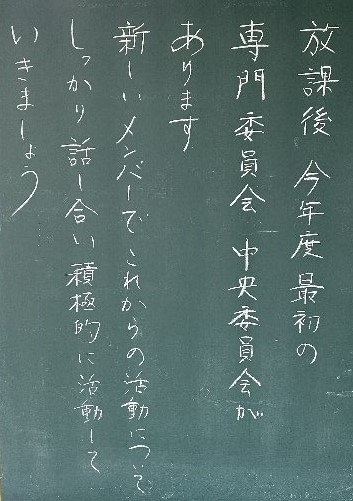 放課後 今年度最初の
専門委員会 中央委員会が
あります
新しいメンバーでこれからの活動について
しっかり話し合い積極的に活動して
いきましょう